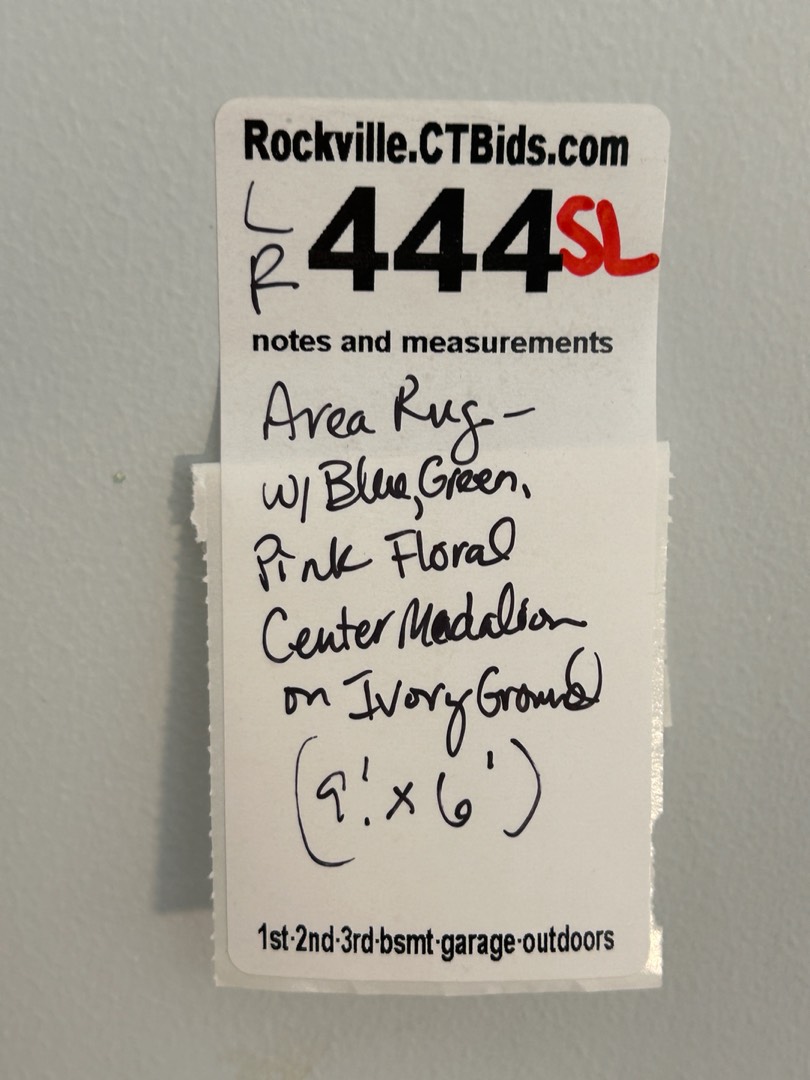 Rockville.CTBids.com
LR 444 SL
notes and measurements
Area Rug -
w/ Blue, Green,
Pink Floral
Center Madalion
on Ivory Ground
(9'. x 6')
1st·2nd·3rd·bsmt·garage·outdoors